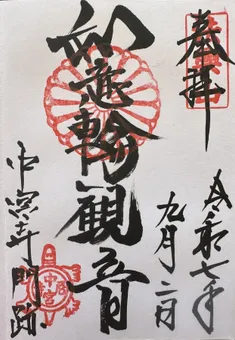 奉拝
令和七年
九月二日
如意輪観音
中宮寺門跡